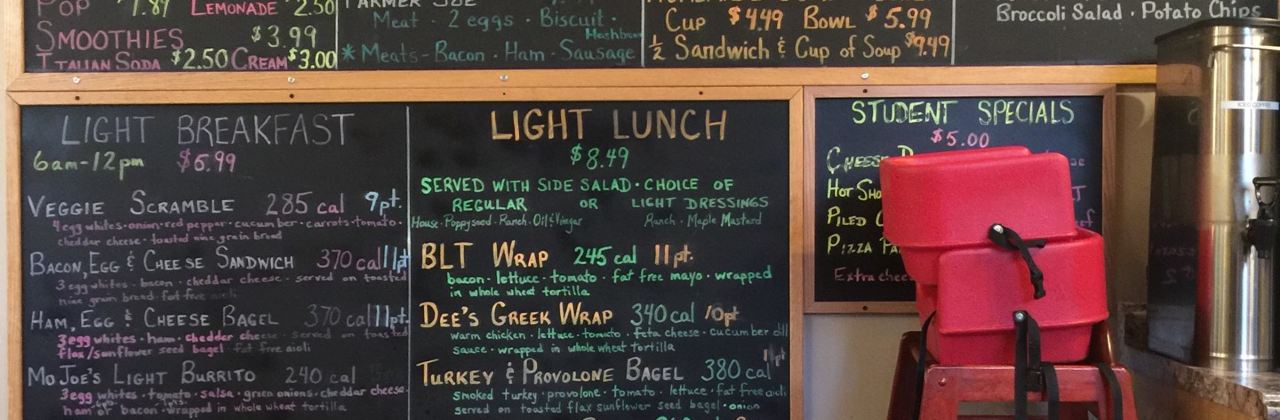 POP LEMONADE $2.50
SMOOTHIES $3.99
ITALIAN SODA $2.50 CREAM $3.00
FARMER JOE
Meat · 2 eggs · Biscuit ·
Hashbrown
* Meats - Bacon · Ham · Sausage
CUP $4.49 BOWL $5.99
½ SANDWICH & CUP of SOUP $9.49
Broccoli Salad · Potato Chips
LIGHT BREAKFAST
6am-12pm $6.99
VEGGIE SCRAMBLE 285 cal 9pt.
4 egg whites · onion · red pepper · cucumber · carrots · tomato ·
cheddar cheese · toasted nine grain bread
BACON, EGG & CHEESE SANDWICH 370 cal 11pt
3 egg whites · bacon · cheddar cheese · served on toasted
nine grain bread · fat free aioli
HAM, EGG & CHEESE BAGEL 370 cal 11pt.
3 egg whites · ham · cheddar cheese · served on toasted
flax/sunflower seed bagel · fat free aioli
MO JOE'S LIGHT BURRITO 240 cal
3 egg whites · tomato · salsa · green onions · cheddar cheese ·
ham or bacon · wrapped in whole wheat tortilla
LIGHT LUNCH
$8.49
SERVED WITH SIDE SALAD · CHOICE OF
REGULAR OR LIGHT DRESSINGS
House · Poppyseed · Ranch · Oil & Vinegar Ranch · Maple Mustard
BLT WRAP 245 cal 11pt.
bacon · lettuce · tomato · fat free mayo · wrapped
in whole wheat tortilla
DEE'S GREEK WRAP 340 cal 10pt
warm chicken · lettuce · tomato · feta cheese · cucumber dill
sauce · wrapped in whole wheat tortilla
TURKEY & PROVOLONE BAGEL 380 cal 11pt
smoked turkey · provolone · tomato · lettuce · fat free aioli
served on toasted flax sunflower seed bagel · onion
STUDENT SPECIALS
$5.00
CHEESE
HOT
PILED
PIZZA
Extra cheese
ICED COFFEE